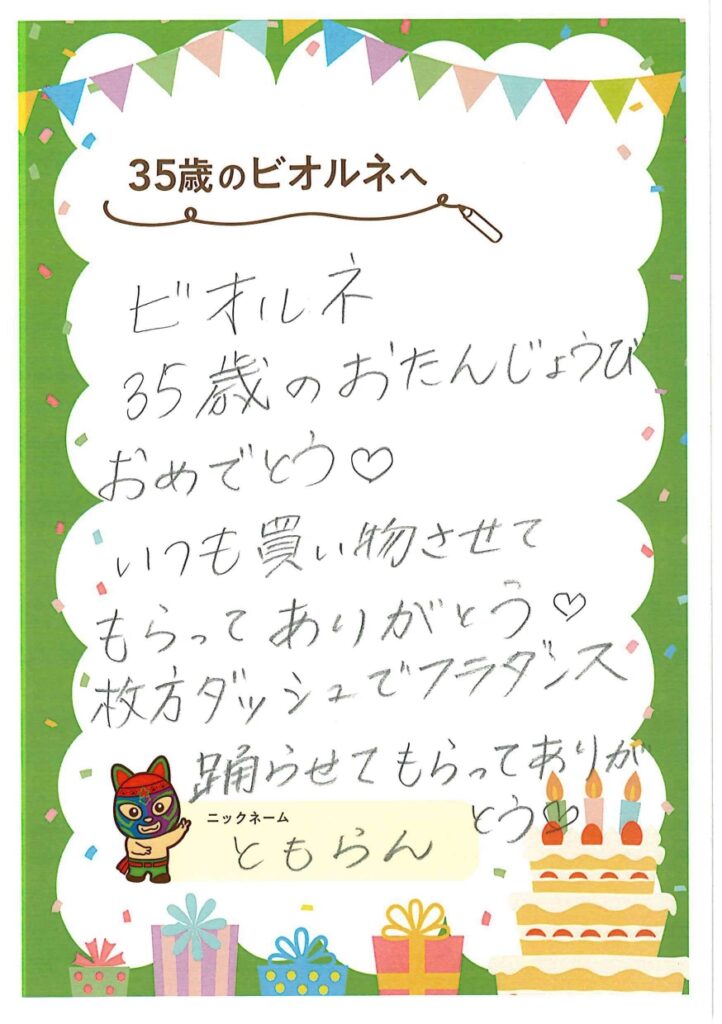 35歳のビオルネへ
ビオルネ
35歳のおたんじょうび
おめでとう♡
いつも買い物させて
もらってありがとう♡
枚方ダッシュでフラダンス
踊らせてもらってありが
とう♡
ニックネーム
ともらん